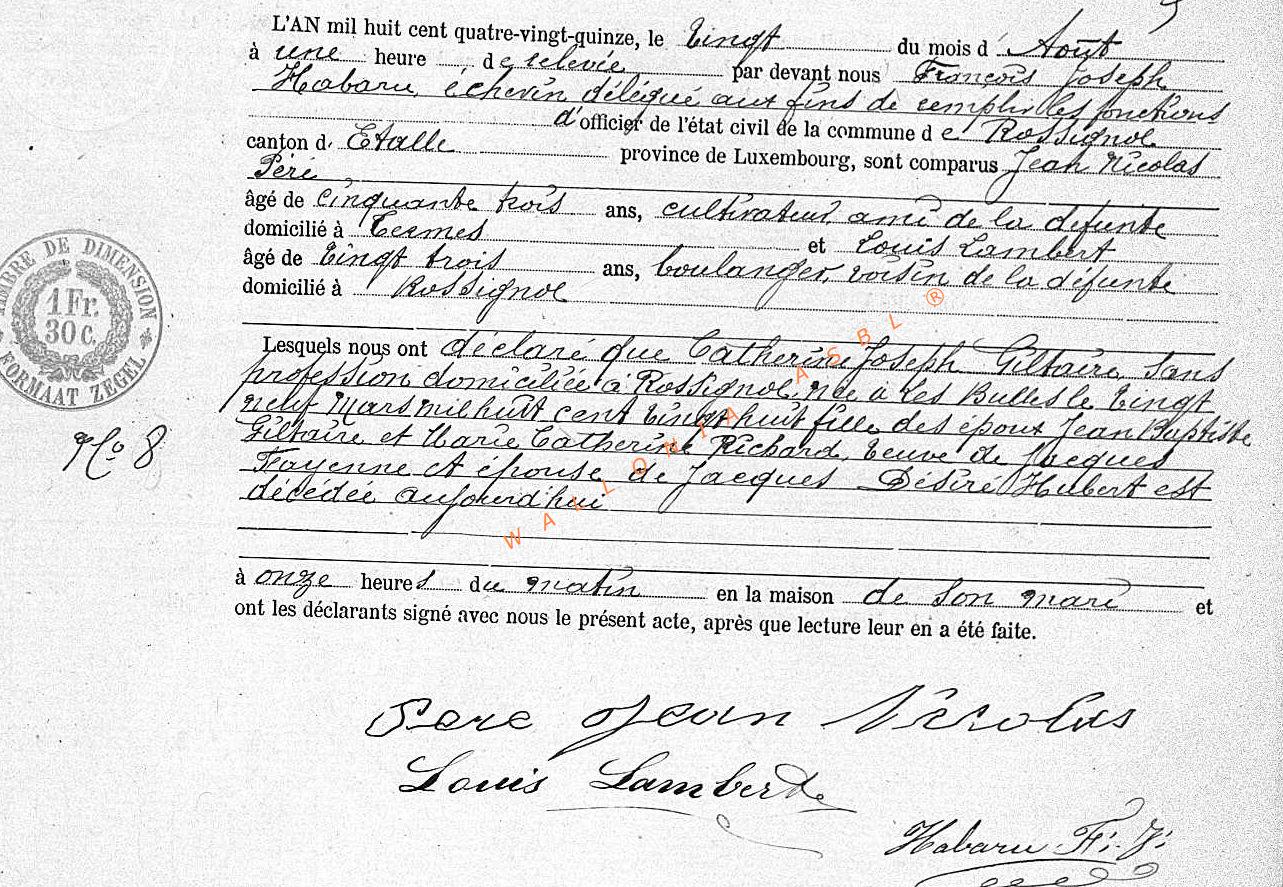 L'AN mil huit cent quatre-vingt-quinze, le Vingt du mois d' Août
à une heure de relevée par devant nous François Joseph
Habaru, échevin délégué aux fins de remplir les fonctions
d'officier de l'état civil de la commune de Rossignol
canton d' Etalle province de Luxembourg, sont comparus Jean Nicolas
Péré
âgé de cinquante trois ans, cultivateur, ami de la défunte
domicilié à Termes et Louis Lambert
âgé de Vingt trois ans, boulanger, voisin de la défunte
domicilié à Rossignol
Lesquels nous ont déclaré que Catherine Joseph Giltaire, sans
profession, domiciliée à Rossignol, née à Les Bulles le Vingt
neuf Mars mil huit cent Vingt huit fille des époux Jean Baptiste
Giltaire et Marie Catherine Richard, Veuve de Jacques
Fayenne et épouse de Jacques Désiré Hubert est
décédée aujourd'hui
à onze heures du matin en la maison de son mari et
ont les déclarants signé avec nous le présent acte, après que lecture leur en a été faite.
TIMBRE DE DIMENSION
1 Fr.
30 c.
FORMAAT ZEGEL
No 8
WALLONIA ASBL ®
Pere Jean Nicolas
Louis Lambert
Habaru F. J.